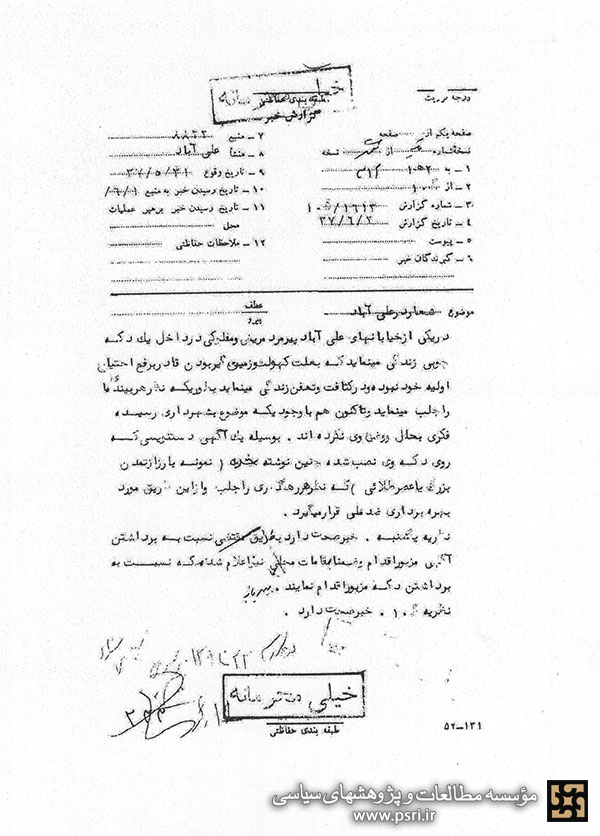 خیلی محرمانه
طبقه بندی حفاظتی
گزارش خبر
درجه فوریت
صفحه یکم از صفحه
نسخه شماره از نسخه
۱ - به ۱۰ه۲ ۳۱۲
۲ - از ۱۰ه
۳ - شماره گزارش ۱۰ه/۱۶۱۳
۴ - تاریخ گزارش ۳۷/۶/۲
۵ - پیوست
۶ - گیرندگان خبر
۷ - منبع ۸۸۳۳
۸ - منشأ علی آباد
۹ - تاریخ وقوع ۳۷/۵/۳۱
۱۰ - تاریخ رسیدن خبر به منبع ۶/۱/
۱۱ - تاریخ رسیدن خبر برهبر عملیات
محل
۱۲ - ملاحظات حفاظتی
موضوع شعار در علی آباد
عطف
پیرو
در یکی از خیابانهای علی آباد پیرمرد مریض و مفلوکی در داخل یك دکه
چوبی زندگی مینماید که بعلت کهولت و زمین گیر بودن قادر برفع احتیاج
اولیه خود نبوده و در کثافت و تعفن زندگی مینماید بطوریکه نظر هر بیننده ا
را جلب مینماید و تاکنون هم با وجودیکه موضوع بشهرداری رسیده
فکری بحال و وضع وی نکرده اند . بوسیله یك آگهی دستنویسی که
روی دکه وی نصب شده چنین نوشته ( نمونه بارز از تمدن
بزرگ یا عصر طلائی ) که نظر هر رهگذری را جلب و از این طریق مورد
بهره برداری ضد ملی قرار میگیرد .
نظریه یکشنبه . خبر صحت دارد بطریق مقتضی نسبت به برداشتن
آگهی مزبور اقدام و ضمنا بمقامات محلی نیز اعلام شده که نسبت به
برداشتن دکه مزبور اقدام نمایند .
نظریه ۱۰ه . خبر صحت دارد .
خیلی محرمانه
طبقه بندی حفاظتی
۵۲-۱۳۱
مؤسسه مطالعات و پژوهشهای سیاسی
www.psri.ir